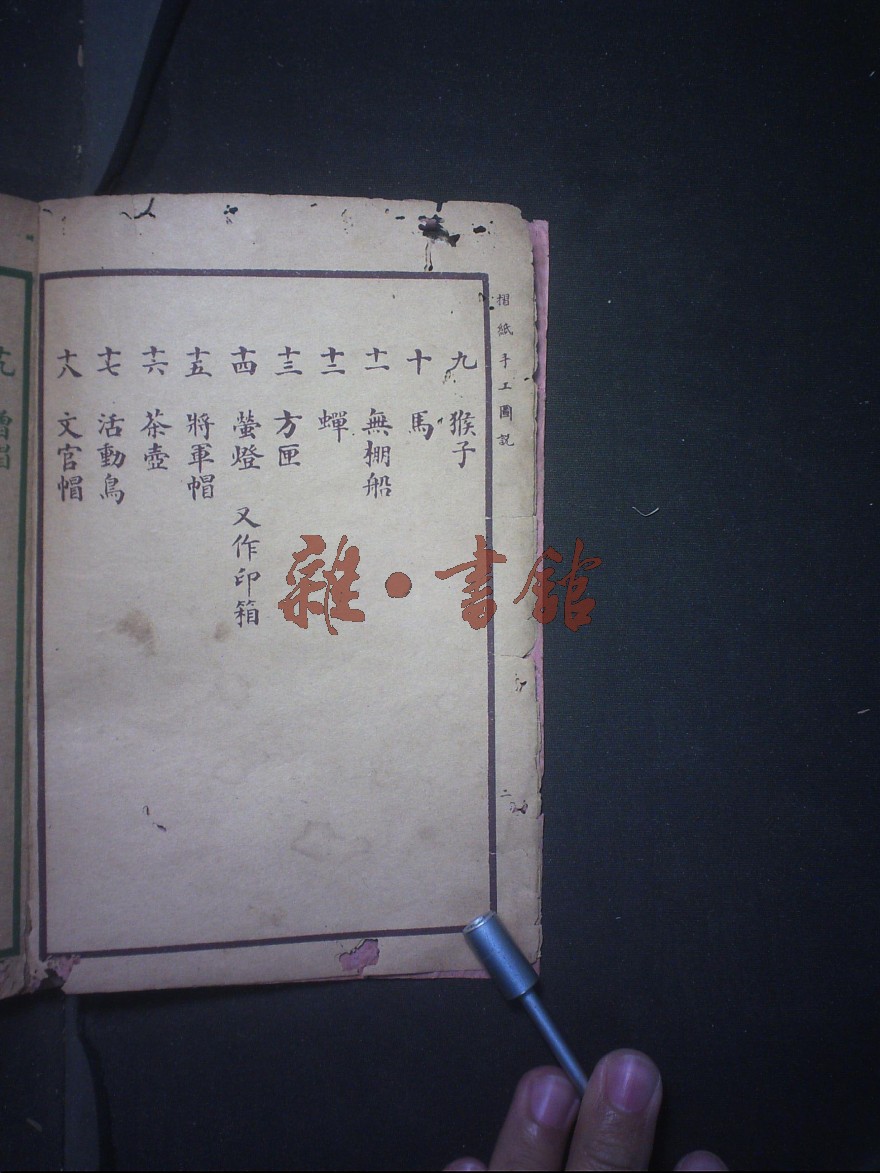 摺紙手工圖説
二
九 猴子
十 馬
十一 無棚船
十二 蟬
十三 方匣
十四 螢燈 又作印箱
十五 將軍帽
十六 茶壺
十七 活動鳥
十八 文官帽
雜·書館